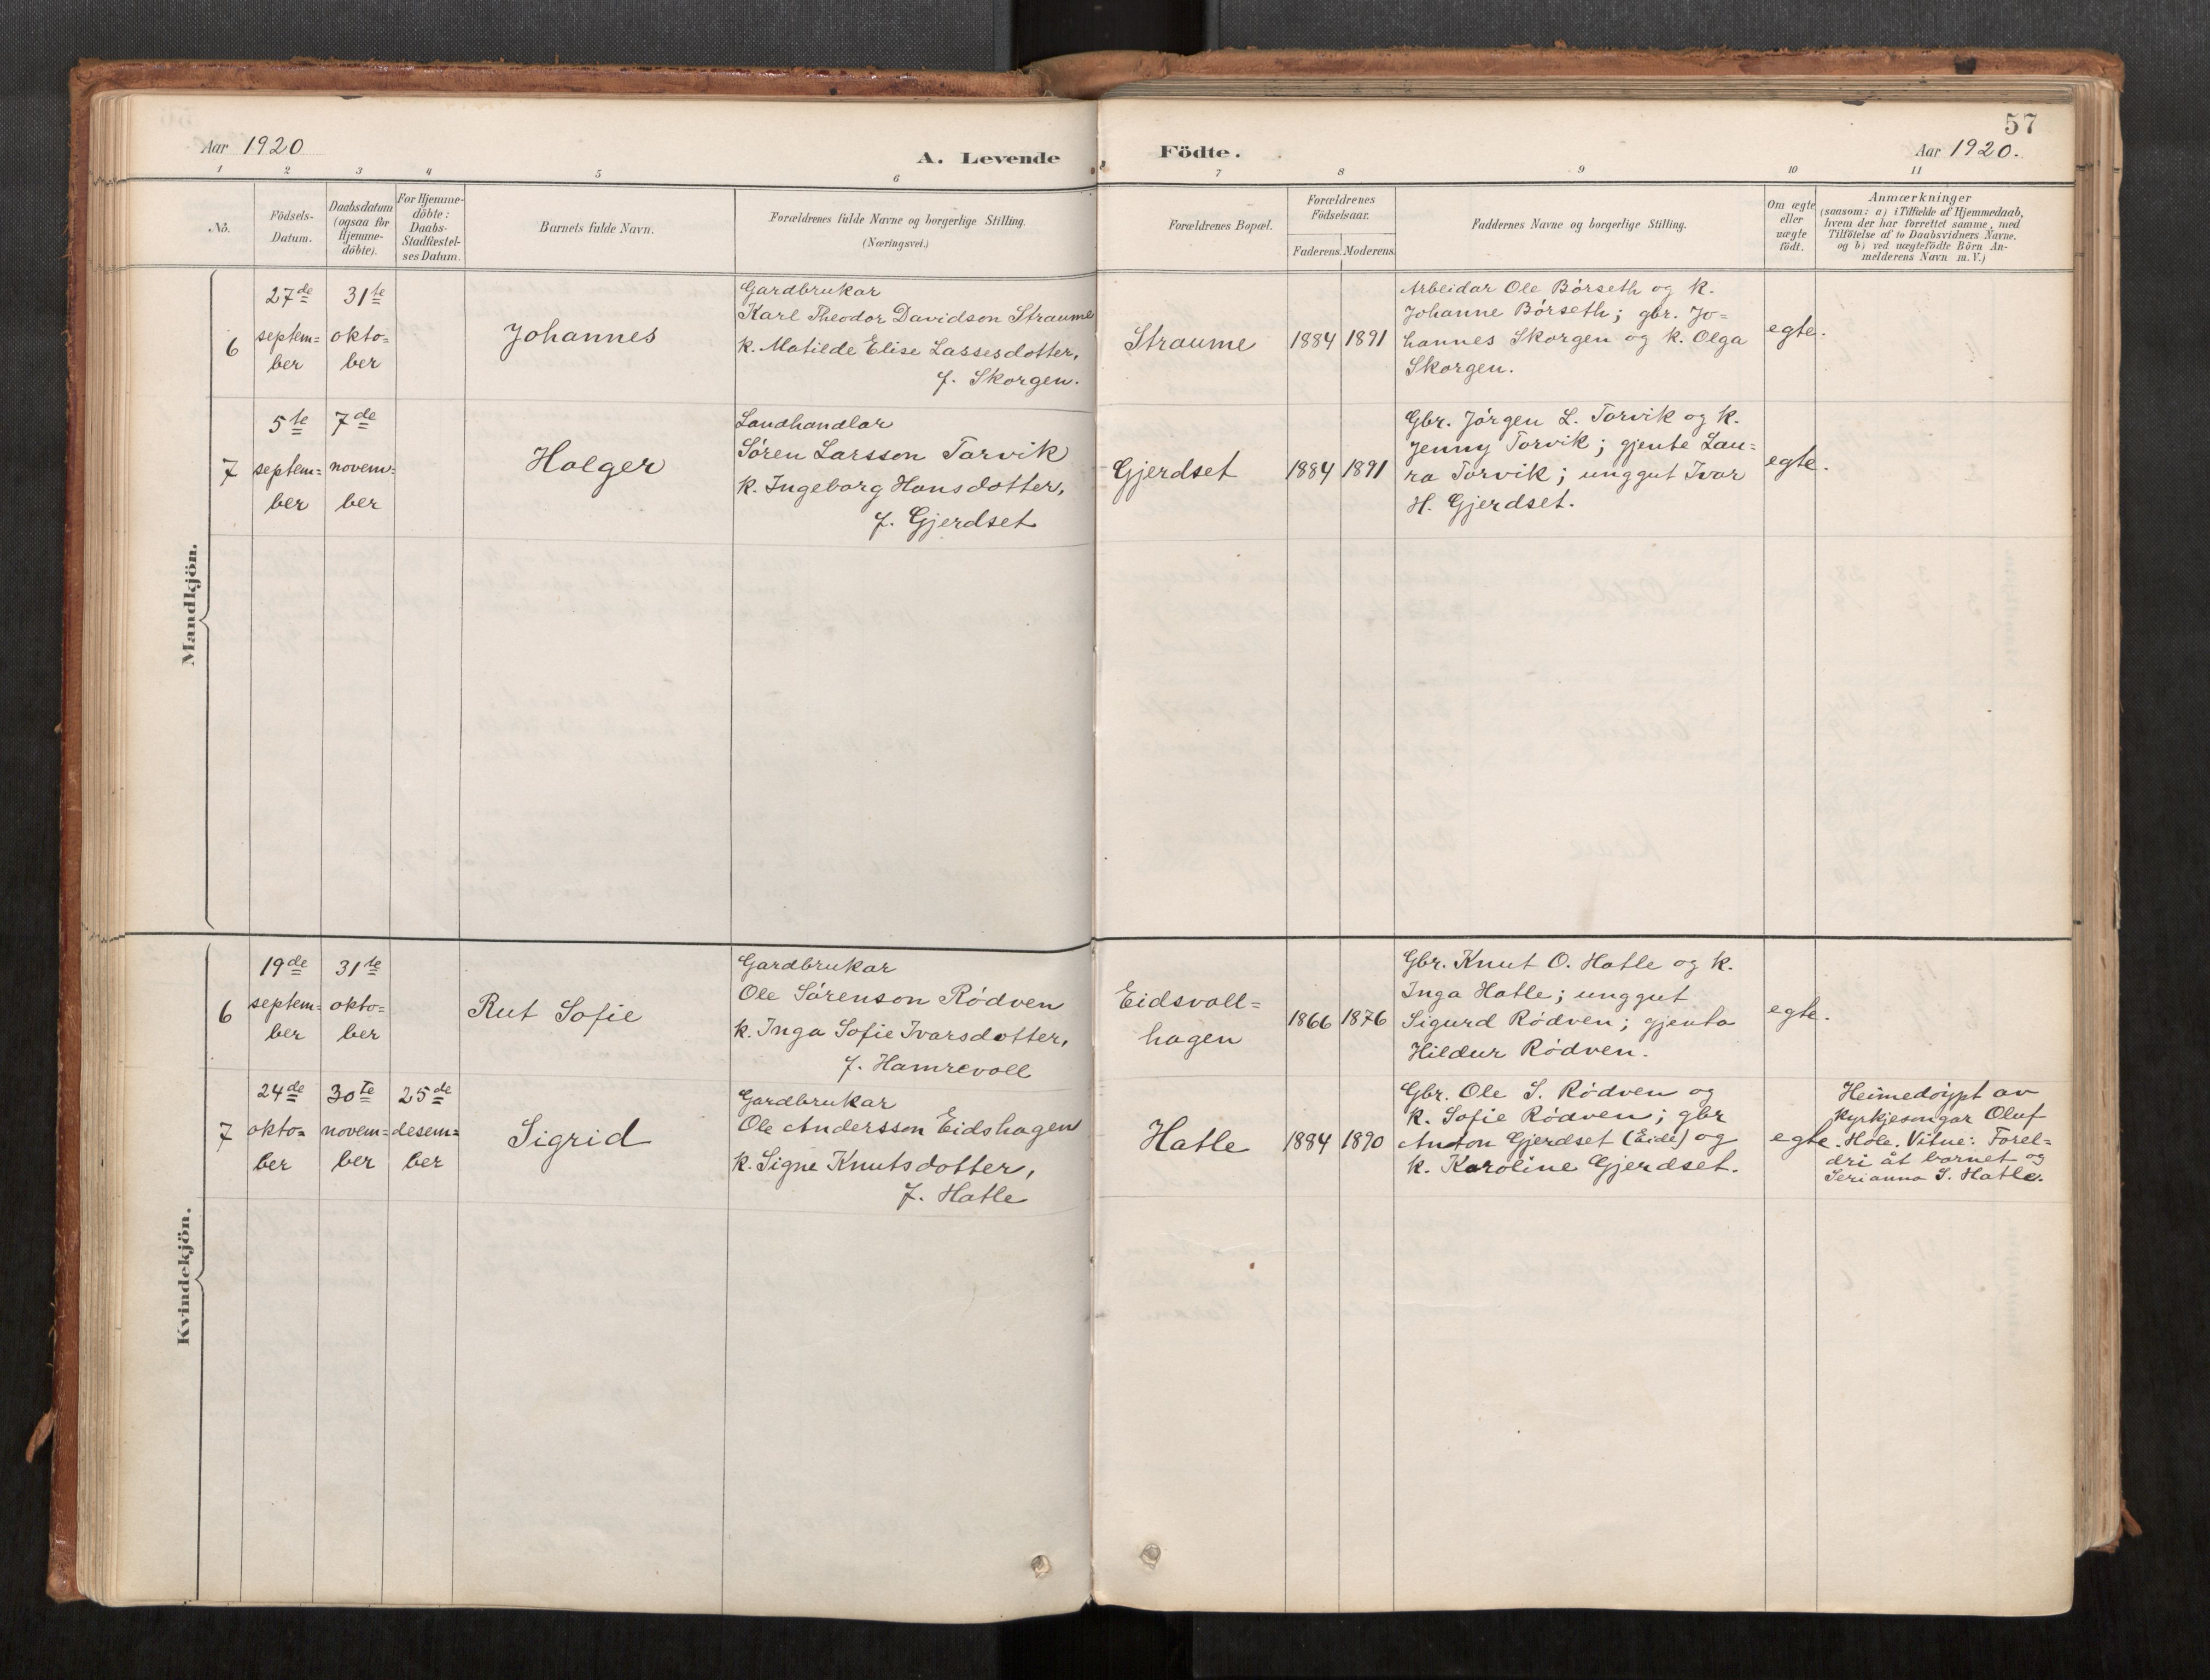 57
Aar 1920
A. Levende
Födte.
Aar 1920.
1 2 3 4 5 6 7 8 9 10 11
No.
Födsels-
Datum.
Daabsdatum
(ogsaa for
Hjemme-
döbte).
For Hjemme-
döbte:
Daabs-
Stadfæstel-
ses Datum.
Barnets fulde Navn.
Forældrenes fulde Navne og borgerlige Stilling.
(Næringsvei.)
Forældrenes Bopæl.
Forældrenes
Födselsaar.
Faderens. Moderens.
Faddernes Navne og borgerlige Stilling.
Om ægte
eller
uægte
födt.
Anmærkninger
(saasom: a) i Tilfælde af Hjemmedaab,
hvem der har forrettet samme, med
Tilföielse af to Daabsvidners Navne.
og b) ved uægtefödte Börn An-
melderens Navn m. V.)
Mandkjön.
6
27de
septem=
ber
31te
okto=
ber
Johannes
Gardbrukar
Karl Theodor Davidson Straume
k. Matilde Elise Lassesdotter,
f. Skorgen.
Straume
1884 1891
Arbeidar Ole Börseth og k.
Johanne Börseth; gbr. Jo=
hannes Skorgen og k. Olga
Skorgen.
egte.
7
5te
septem=
ber
7de
novem=
ber
Holger
Landhandlar
Sören Larsson Torvik
k. Ingeborg Hansdotter,
f. Gjerdset
Gjerdset
1884 1891
Gbr. Jörgen L. Torvik og k.
Jenny Torvik; gjente Lau=
ra Torvik; unggut Ivar
H. Gjerdset.
egte.
Kvindekjön.
6
19de
septem=
ber
31te
okto=
ber
Rut Sofie
Gardbrukar
Ole Sörenson Rödven
k. Inga Sofie Ivarsdotter,
f. Hamrevoll
Eidsvoll=
hagen
1866 1876
Gbr. Knut O. Hatle og k.
Inga Hatle; unggut
Sigurd Rödven; gjenta
Hildur Rödven.
egte.
7
24de
okto=
ber
30te
novem=
ber
25de
desem=
ber
Sigrid
Gardbrukar
Ole Andersson Eidshagen
k. Signe Knutsdotter,
f. Hatle
Hatle
1884 1890
Gbr. Ole S. Rödven og
k. Sofie Rödven; gbr
Anton Gjerdset (Eide) og
k. Karoline Gjerdset.
egte.
Heimedöypt av
kyrkjesongar Oluf
Hole. Vitne: Forel=
dri åt barnet og
Serianna S. Hatle.